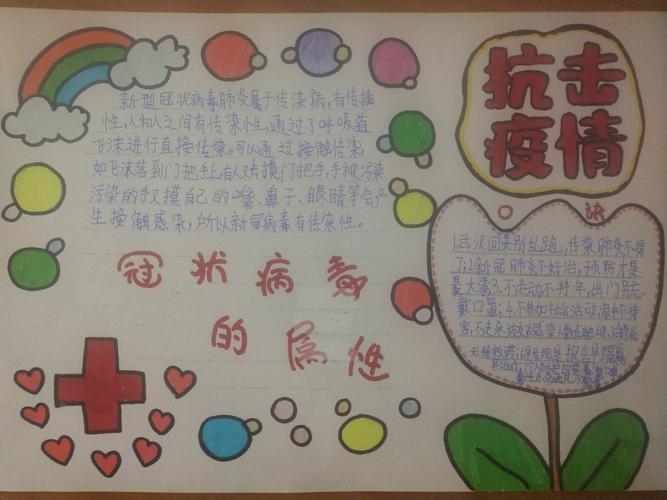 抗击
疫情
新型冠状病毒肺炎属于传染病,有传播
性,人和人之间有传染性,通过了呼吸道
飞沫进行直接传染。可以通过接触传染,
如飞沫落到门把手上,有人又有摸门把手,手被污染
污染的手又摸自己的嘴、鼻子、眼睛等会产
生接触感染,所以新冠病毒有传染性。
冠状病毒
的属性
口
诀
1武汉回来别乱跑,传染肺炎不得
了;2新冠肺炎不好治,预防才是
最大
3.不走动不拜年,出门另忘
戴口罩;4.不参加社会活动,
客,不走亲访友